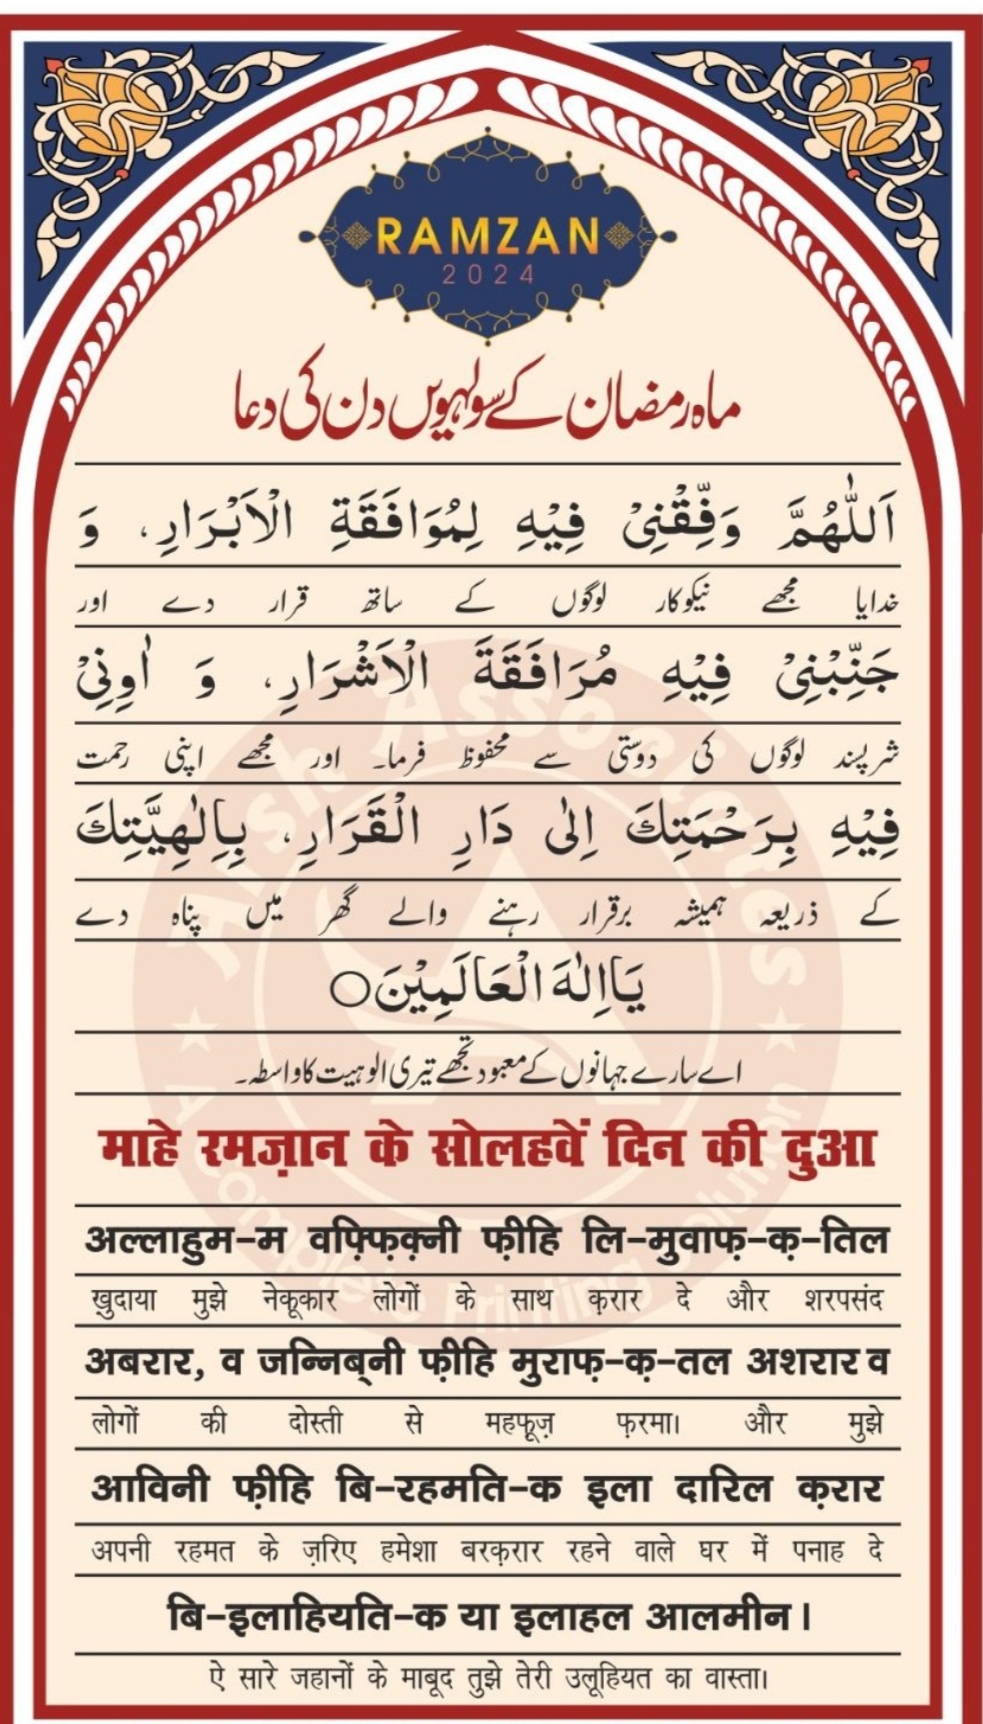 RAMZAN
2024
ماہ رمضان کے سولہویں دن کی دعا
اَللّٰهُمَّ وَفِّقْنِیْ فِیْهِ لِمُوَافَقَةِ الْاَبْرَارِ، وَ
خدایا مجھے نیکوکار لوگوں کے ساتھ قرار دے اور
جَنِّبْنِیْ فِیْهِ مُرَافَقَةَ الْاَشْرَارِ، وَ اٰوِنِیْ
شرپسند لوگوں کی دوستی سے محفوظ فرما۔ اور مجھے اپنی رحمت
فِیْهِ بِرَحْمَتِكَ اِلٰی دَارِ الْقَرَارِ، بِاِلٰهِیَّتِكَ
کے ذریعہ ہمیشہ برقرار رہنے والے گھر میں پناہ دے
یَااِلٰهَ الْعَالَمِیْنَ○
اے سارے جہانوں کے معبود تجھے تیری الوہیت کا واسطہ۔
माहे रमज़ान के सोलहवें दिन की दुआ
अल्लाहुम-म वफ़्फ़िक़्नी फ़ीहि लि-मुवाफ़-क़-तिल
ख़ुदाया मुझे नेकूकार लोगों के साथ क़रार दे और शरपसंद
अबरार, व जन्निब्नी फ़ीहि मुराफ़-क़-तल अशरार व
लोगों की दोस्ती से महफ़ूज़ फ़रमा। और मुझे
आविनी फ़ीहि बि-रहमति-क इला दारिल क़रार
अपनी रहमत के ज़रिए हमेशा बरक़रार रहने वाले घर में पनाह दे
बि-इलाहियति-क या इलाहल आलमीन।
ऐ सारे जहानों के माबूद तुझे तेरी उलूहियत का वास्ता।
Associates
A Complete Printing Solution